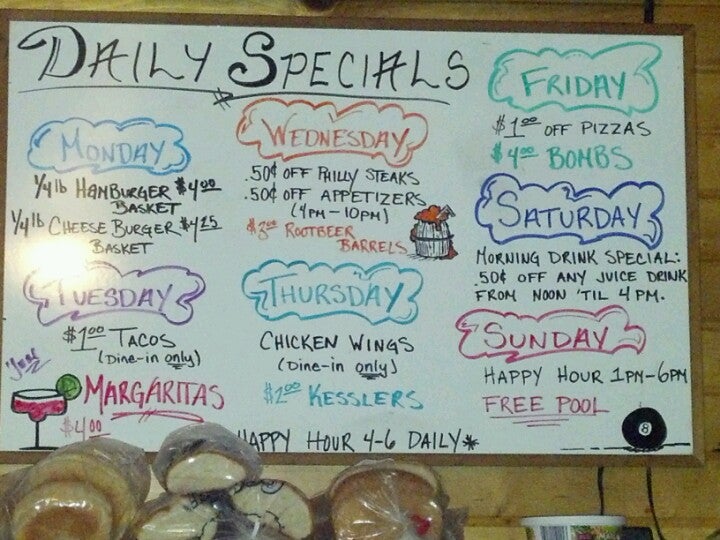 DAILY SPECIALS
MONDAY
1/4 lb HAMBURGER $4.00
BASKET
1/4 lb CHEESE BURGER $4.25
BASKET
TUESDAY
$1.00 TACOS
(DINE-IN only)
MARGARITAS
$4.00
WEDNESDAY
.50¢ OFF PHILLY STEAKS
.50¢ OFF APPETIZERS
(4PM-10PM)
$3.00 ROOTBEER
BARRELS
THURSDAY
CHICKEN WINGS
(DINE-IN only)
$2.00 KESSLERS
HAPPY HOUR 4-6 DAILY*
FRIDAY
$1.00 OFF PIZZAS
$4.00 BOMBS
SATURDAY
MORNING DRINK SPECIAL:
.50¢ OFF ANY JUICE DRINK
FROM NOON 'TIL 4 PM.
SUNDAY
HAPPY HOUR 1PM-6PM
FREE POOL
8